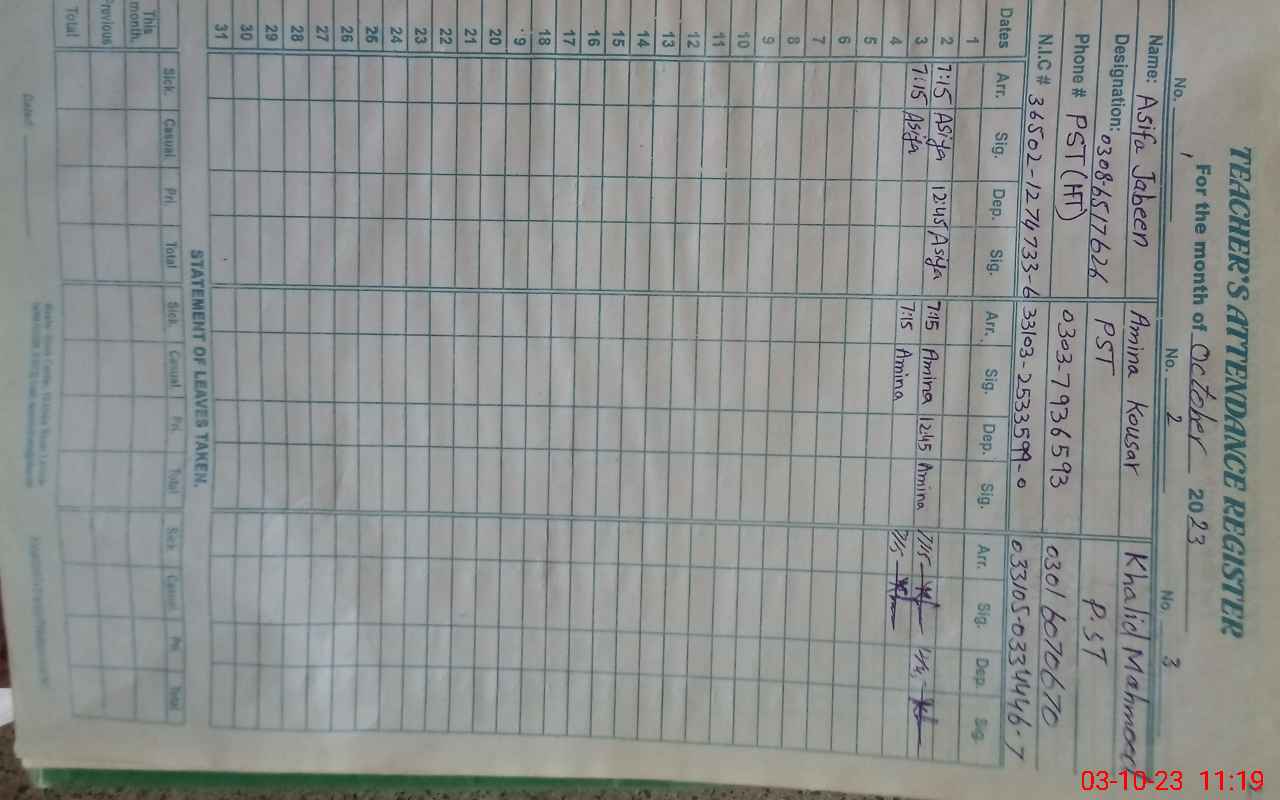 TEACHER'S ATTENDANCE REGISTER
For the month of October 2023
No. No. 2 No. 3
Name: Asifa Jabeen Amina Kousar Khalid Mahmood
Designation: 0308-6517626 PST P.ST
Phone # PST (HT) 0303-7936593 03016070670
N.I.C # 36502-1274733-6 33103-2533599-0 033105-0334446-7
Dates Arr. Sig. Dep. Sig. Arr. Sig. Dep. Sig. Arr. Sig. Dep. Sig.
1
2 7:15 Asifa 12:45 Asifa 7:15 Amina 12:45 Amina 7/15
3 7:15 Asifa 7:15 Amina 7/15
4
5
6
7
8
9
10
11
12
13
14
15
16
17
18
19
20
21
22
23
24
25
26
27
28
29
30
31
STATEMENT OF LEAVES TAKEN.
Sick. Casual Pri. Total Sick. Casual Pri. Total Sick Casual Pri. Total
This month.
Previous
Total
Dated
03-10-23 11:19